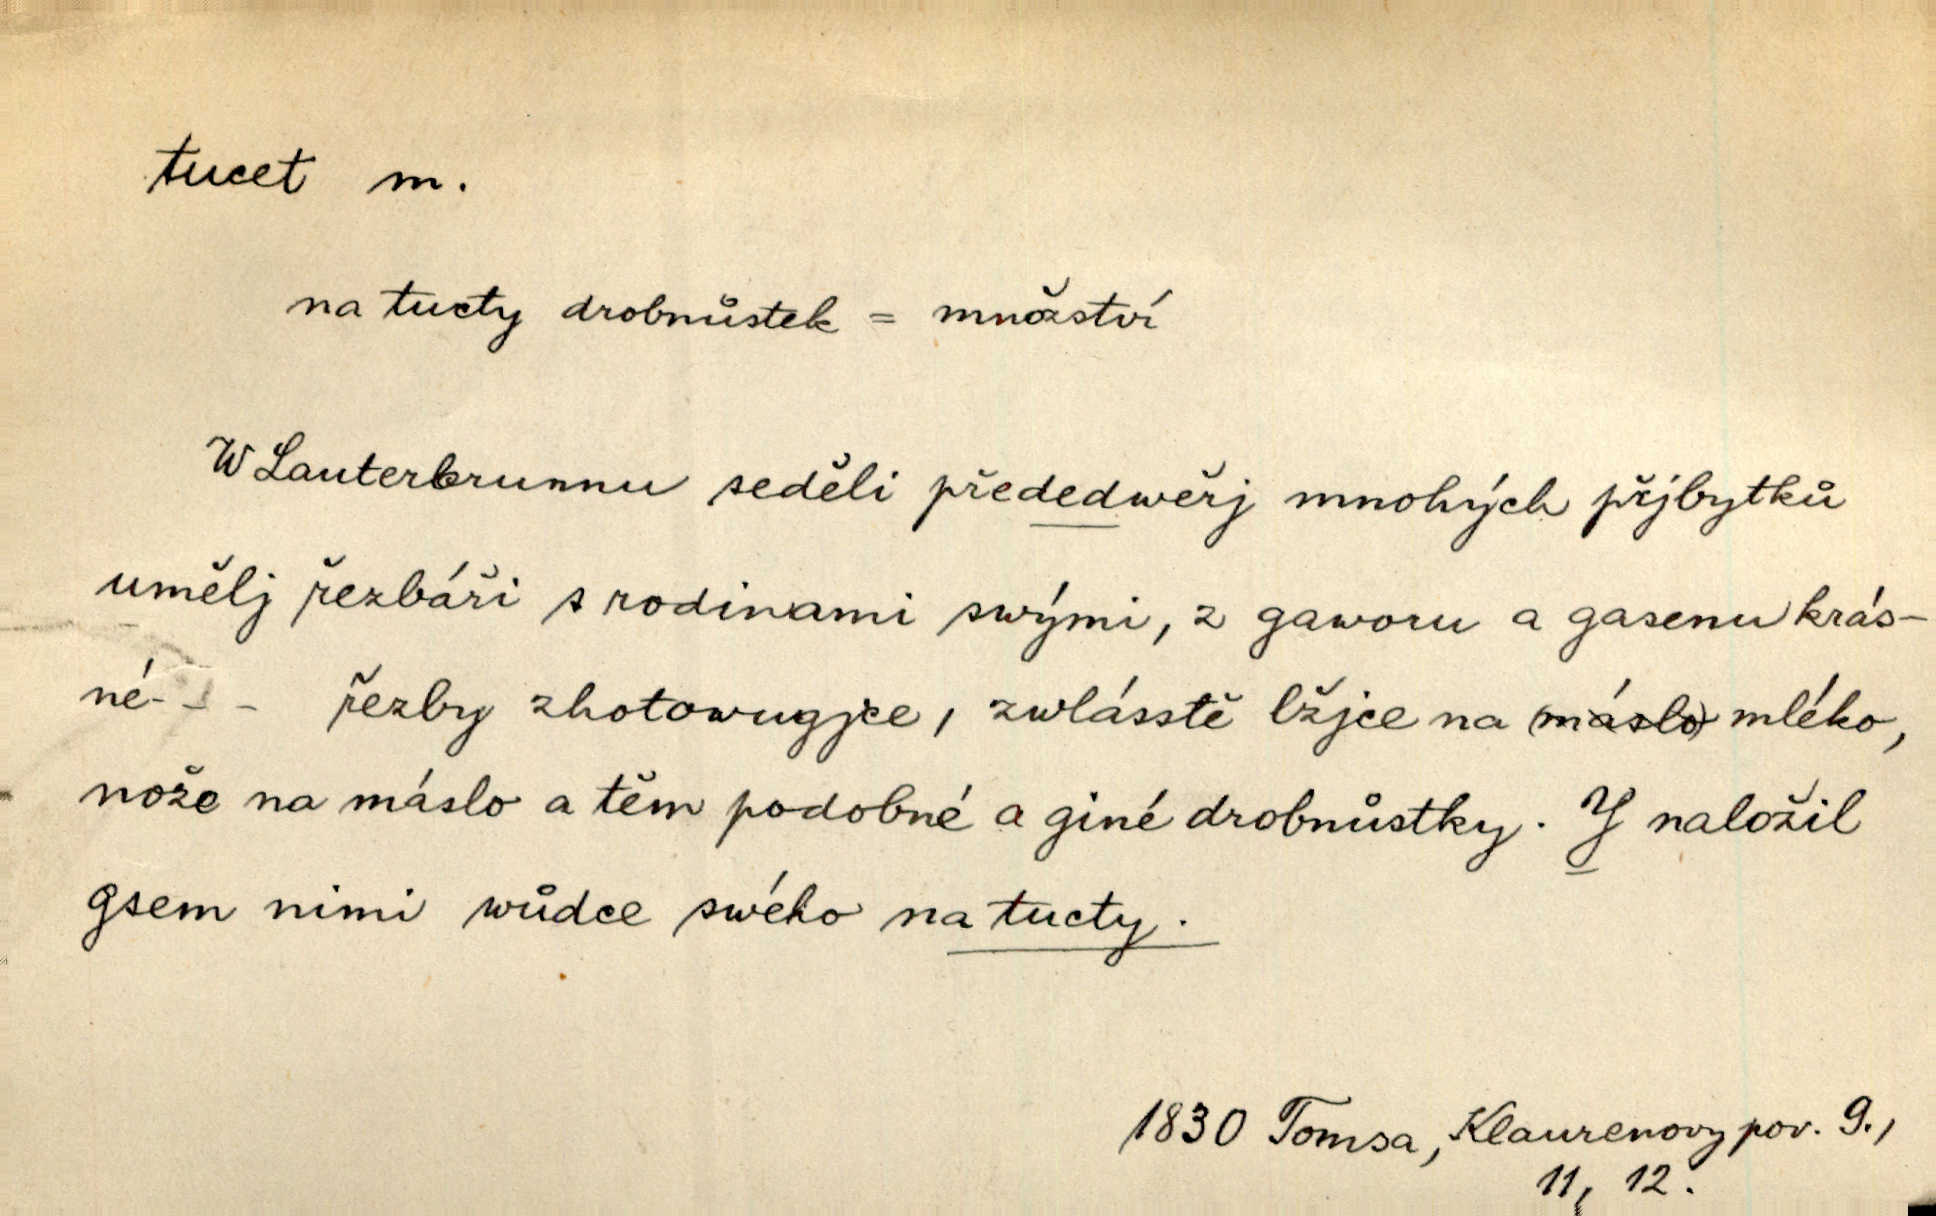 tucet m.
na tucty drobnůstek = množství
W Lauterbrunnu seděli přededwěrj mnohých přjbytků
umělj řezbáři s rodinami swými, z gaworu a gasenu krás-
né - - - řezby zhotowugjce, zwlásstě lžjce na (máslo) mléko,
nože na máslo a těm podobné a giné drobnůstky. Y naložil
gsem nimi wůdce swého na tucty.
1830 Tomsa, Klaurenovy pov. 9.,
11, 12.